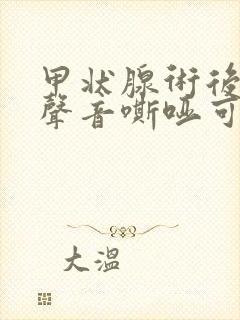 甲状腺術後
聲音嘶啞可
大溫